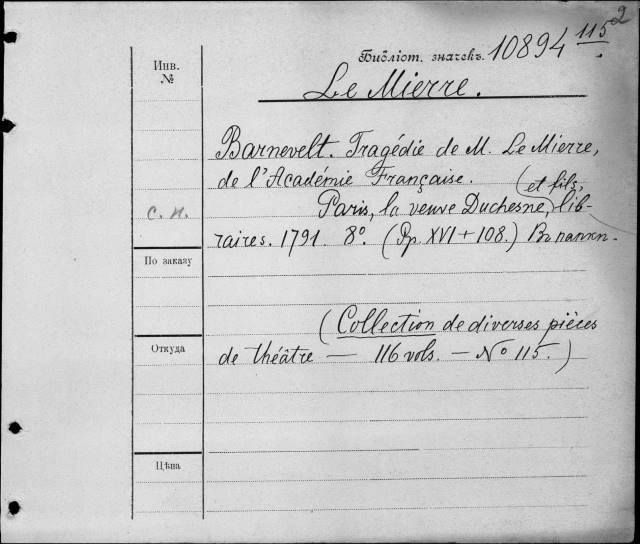 2
Инв.
№
Библіот. значекъ. 10894 115
Le Mierre.
Barnevelt. Tragédie de M. Le Mierre,
de l'Académie Française. (et fils,
с. п. Paris, la veuve Duchesne, lib-
raires. 1791. 8º. (Pp. XVI + 108.) Въ папкѣ.
По заказу
(Collection de diverses pièces
Откуда
de théâtre — 116 vols. — Nº 115.)
Цѣна